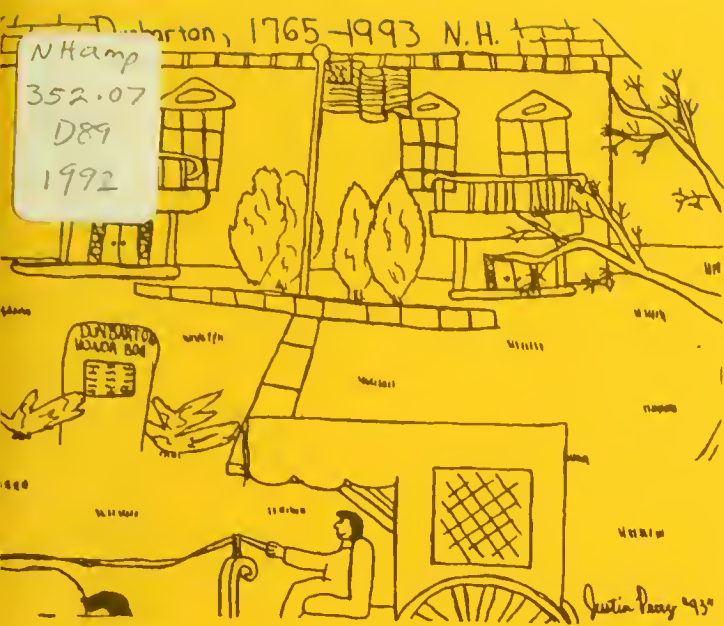 Dunbarton, 1765-1993 N.H.
NHamp
352.07
D89
1992
DUNBARTON
Justin Perry "93"